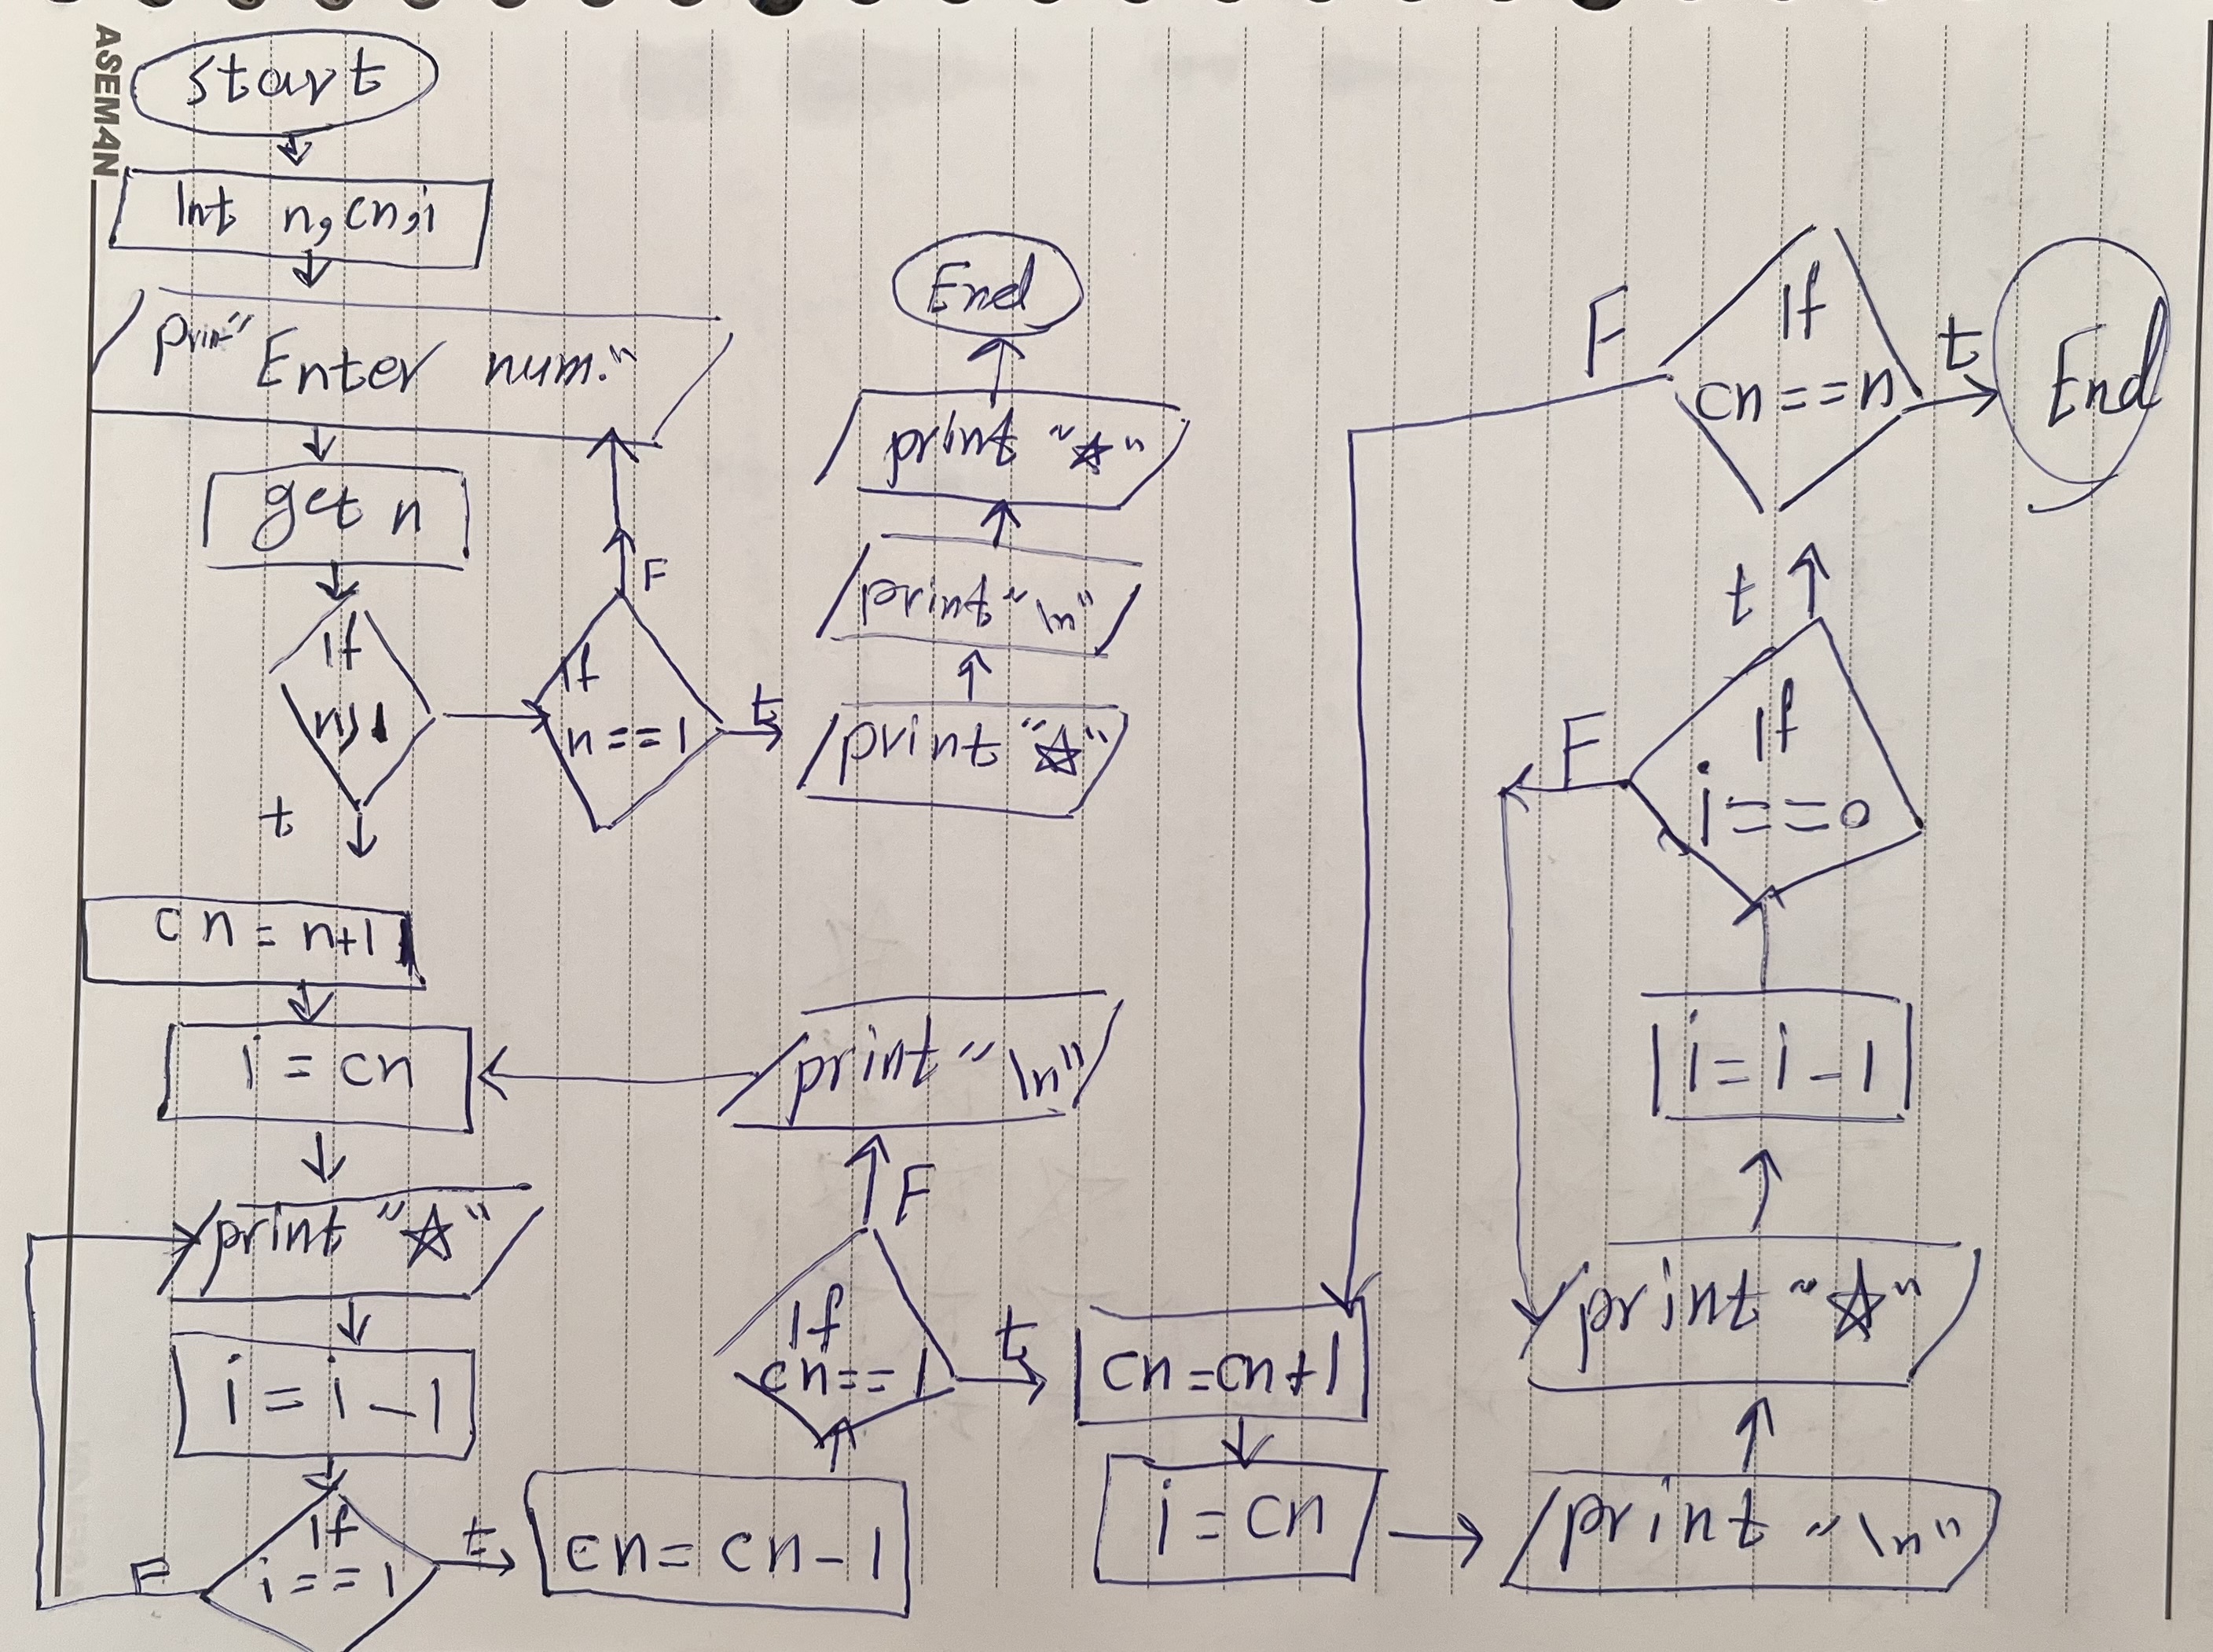 ASEMAN
Start
Int n,cn,i
print"
Enter num."
get n
If
n>1
t
If
n==1
F
t
print "☆"
print "\n"
print "☆"
End
cn = n+1
i = cn
print "☆"
i = i - 1
If
i == 1
F
t
cn = cn - 1
If
cn == 1
F
print "\n"
t
cn = cn+1
i = cn
print "\n"
print "☆"
i = i - 1
If
i == 0
F
t
If
cn == n
F
t
End